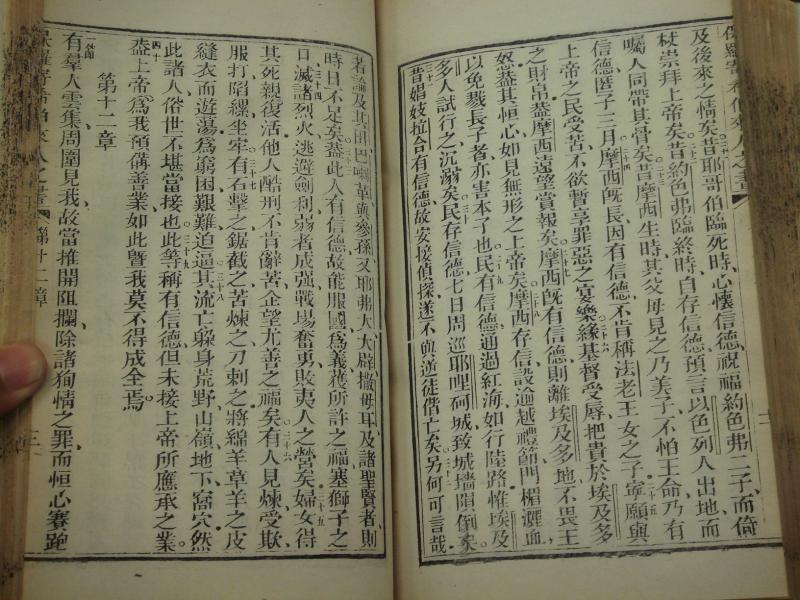 保羅寄希伯來人之書
及後來之情矣昔耶哥伯臨死時、心懷信德、祝福約色弗二子、而倚
杖崇拜上帝矣昔約色弗臨終時、自存信德預言以色列人出地而
囑人同帶其骨矣昔摩西生時、其父母見之乃美子、不怕王命乃有
信德匿子三月、摩西旣長因有信德、不肯稱法老王女之子、寧願與
上帝之民受苦、不欲暫享罪惡之宴樂、緣基督受辱、把貴於埃及多
之財帛、蓋摩西遠望賞報矣摩西旣有信德、則離埃及多地、不畏王
怒、蓋其恒心、如見無形之上帝矣摩西存信設逾越禮節、門楣灑血、
以免戮長子者、亦害本了也民有信德、通過紅海、如行陸路、惟埃及
多人試行之沉溺矣民存信德、七日周巡耶哩砢城、致城墻隕倒矣
昔娼妓拉合有信德、故安接偵探、遂不與逆徒偕亡矣另何可言哉
若論及其田巴啦革與參孫又耶弗大大辟撒毋耳及諸聖賢者、則
時日不足矣蓋此人有信德、故能服國爲義、獲所許之福、塞獅子之
口、滅諸烈火、逃避劍利、弱者成强、戰場奮勇、敗夷人之營矣婦女得
其死親復活、他人酷刑、不肯辭苦、企望尤善之福矣有人見煉受欺
服打陷縲坐牢、有石擊之、鋸截之、苦煉之、刀刺之、將綿羊草羊之皮
縫衣而遊蕩、爲窮困艱難迫逼、其流亡躱身、荒野山嶺地下窩穴、然
此諸人、俗世不堪當接也此等稱有信德、但未接上帝所應承之業。
蓋上帝爲我預備善業、如此曁我莫不得成全焉。
第十二章
有羣人雲集周圍見我、故當推開阻攔、除諸徇情之罪、而恒心賽跑
保羅寄希伯來人之書 第十二章 三